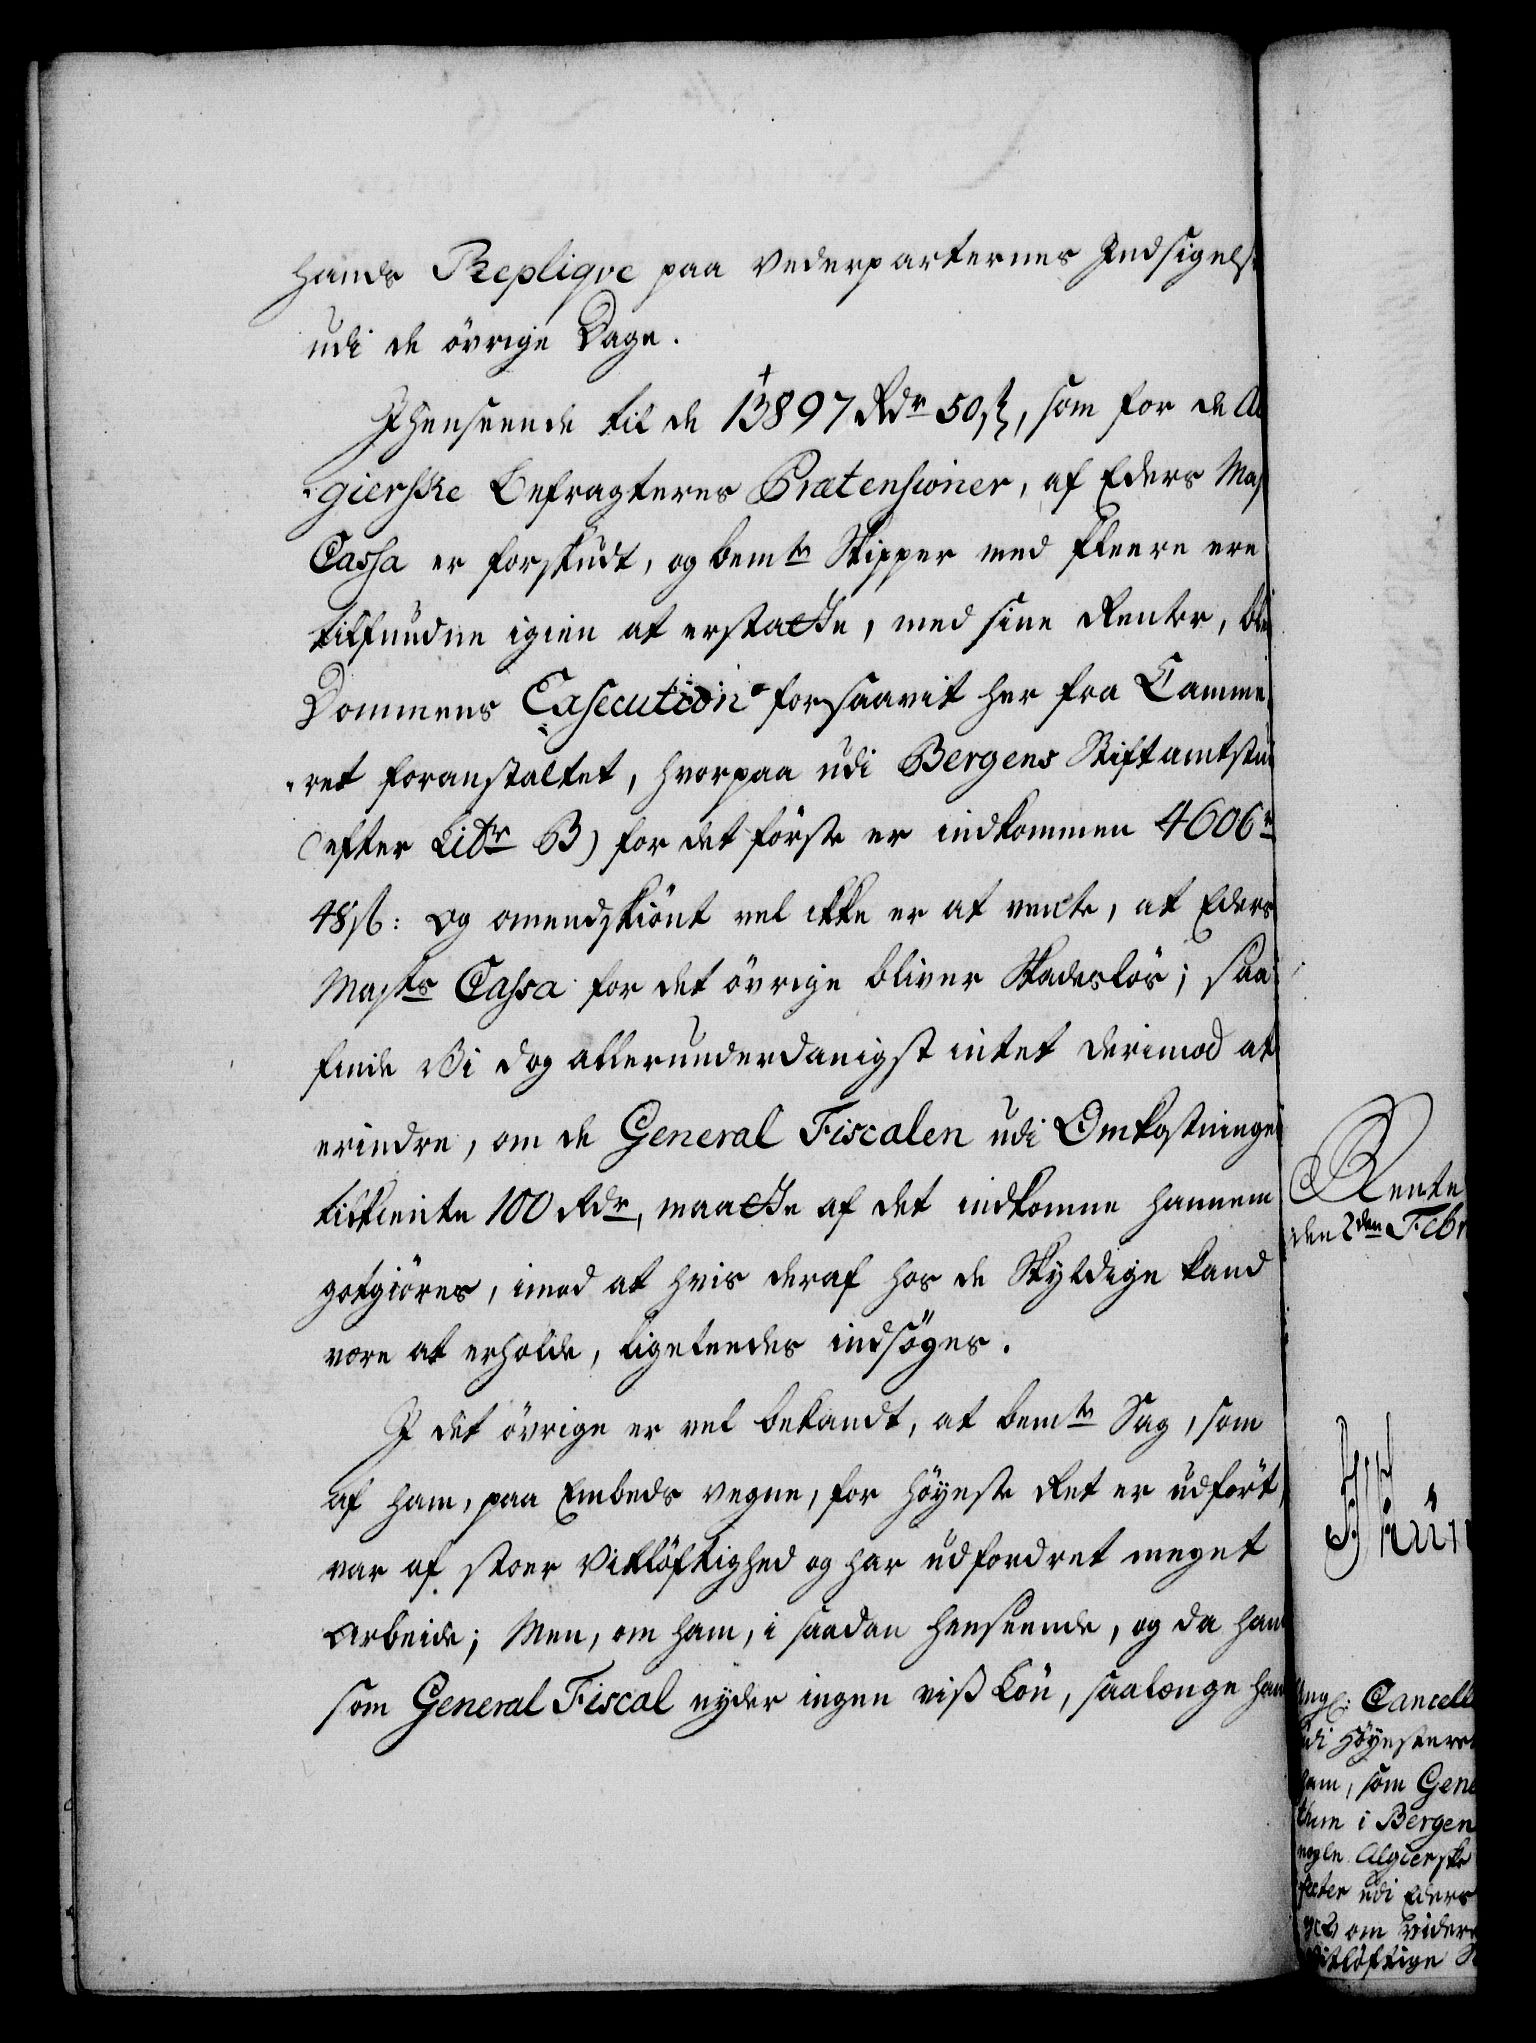 hands Replique paa Vederparternes Indsigels
udi de övrige Dage.
I Henseende til de 13897 Rdr 50 ß, som for de Al
gierske Befragteres Prætensioner, af Eders May
Cassa er forskudt, og bemte Skipper med fleere ere
tilfundne igien at erstatte, med sine Renter, ble
Dommens Execution forsaavit her fra Camme
ret foranstaltet, hvorpaa udi Bergens Stiftamtstue
(efter Litr B) for det förste er indkommen 4606 r
48 ß: Og omendskiönt vel ikke er at vente, at Eders
Mayts Cassa for det övrige bliver Skadeslös; saa
finde Vi dog allerunderdanigst intet derimod at
erindre, om de General Fiscalen udi Omkostninger
tilkiente 100 Rdr, maatte af det indkomne hannem
gotgiöres, imod at hvis deraf hos de Skyldige kand
være at erholde, ligeleedes indsöges.
I det övrige er vel bekandt, at bemte Sag, som
af ham, paa Embeds vegne, for Höyeste Ret er udfört,
var af stoer Vitlöftighed og har udfordret meget
Arbeide; Men, om ham, i saadan Henseende, og da han
som General Fiscal nyder ingen viß Lön, saalænge han
Rente
den 2den Febr
Cancell
udi Höyesteret
ham, som Gene
i Bergen
nogle Algierske
udi Eders
om videre
vitlöftige